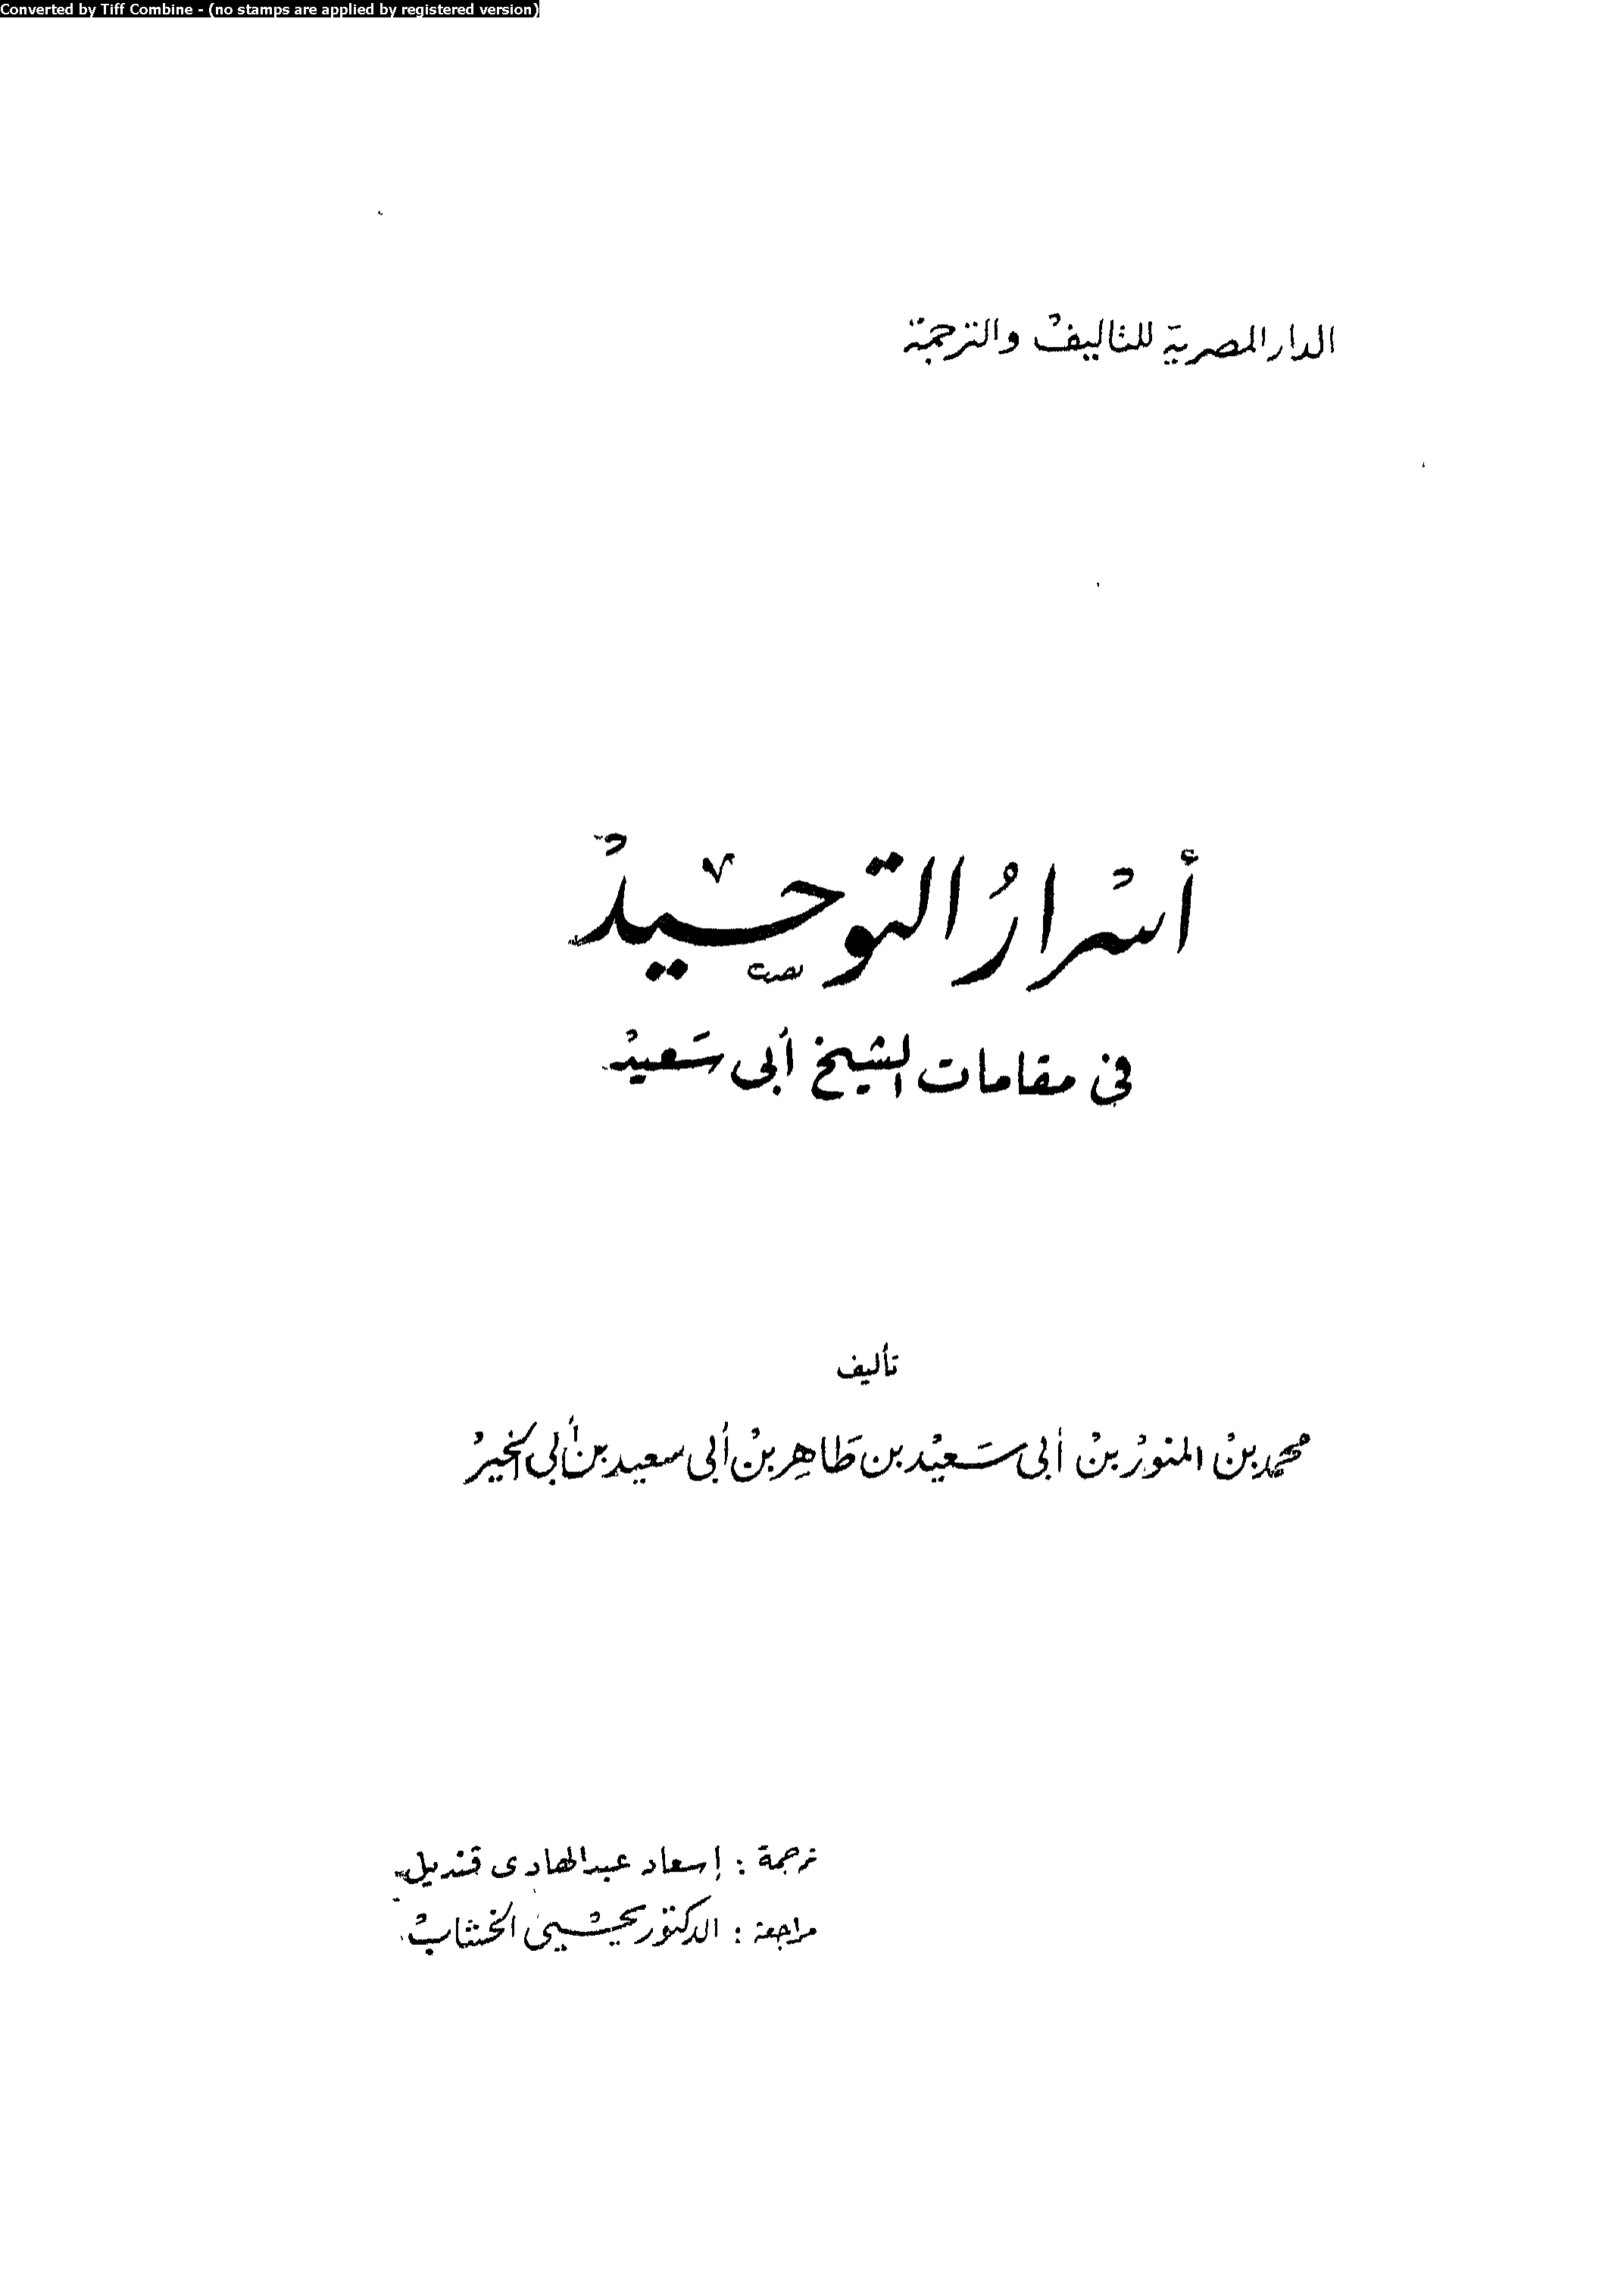 Converted by Tiff Combine - (no stamps are applied by registered version)
الدار المصرية للتأليف والترجمة
أسرار التوحيد
في مقامات الشيخ أبى سعيد
تأليف
محمد بن المنور بن أبى سعيد بن طاهر بن أبى سعيد بن أبى الخير
ترجمة : إسعاد عبد الهادى قنديل
مراجعة : الدكتور يحيى الخشاب